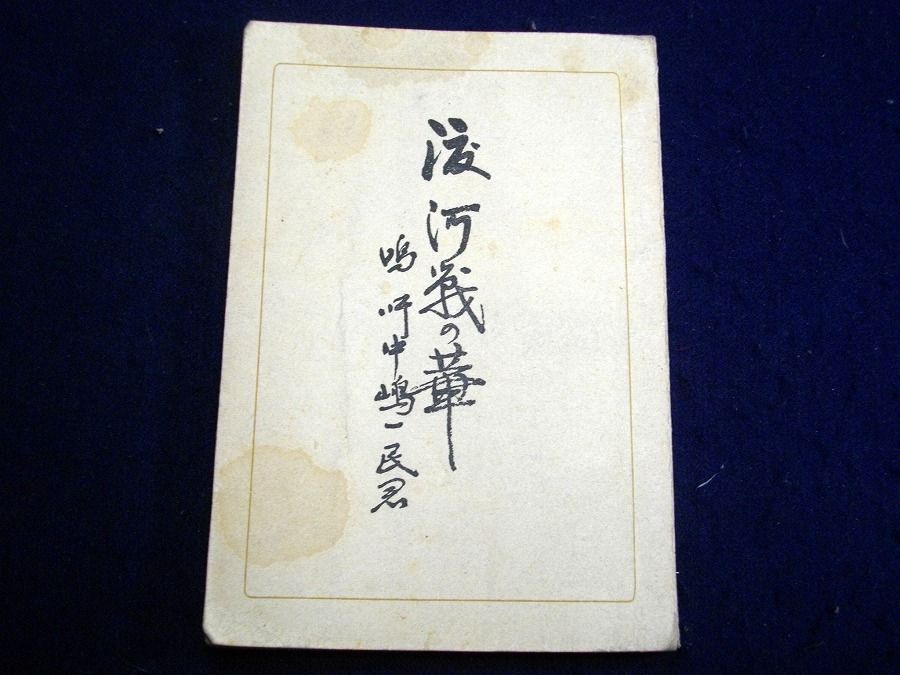 渡河戰の華
嗚呼中嶋一民君